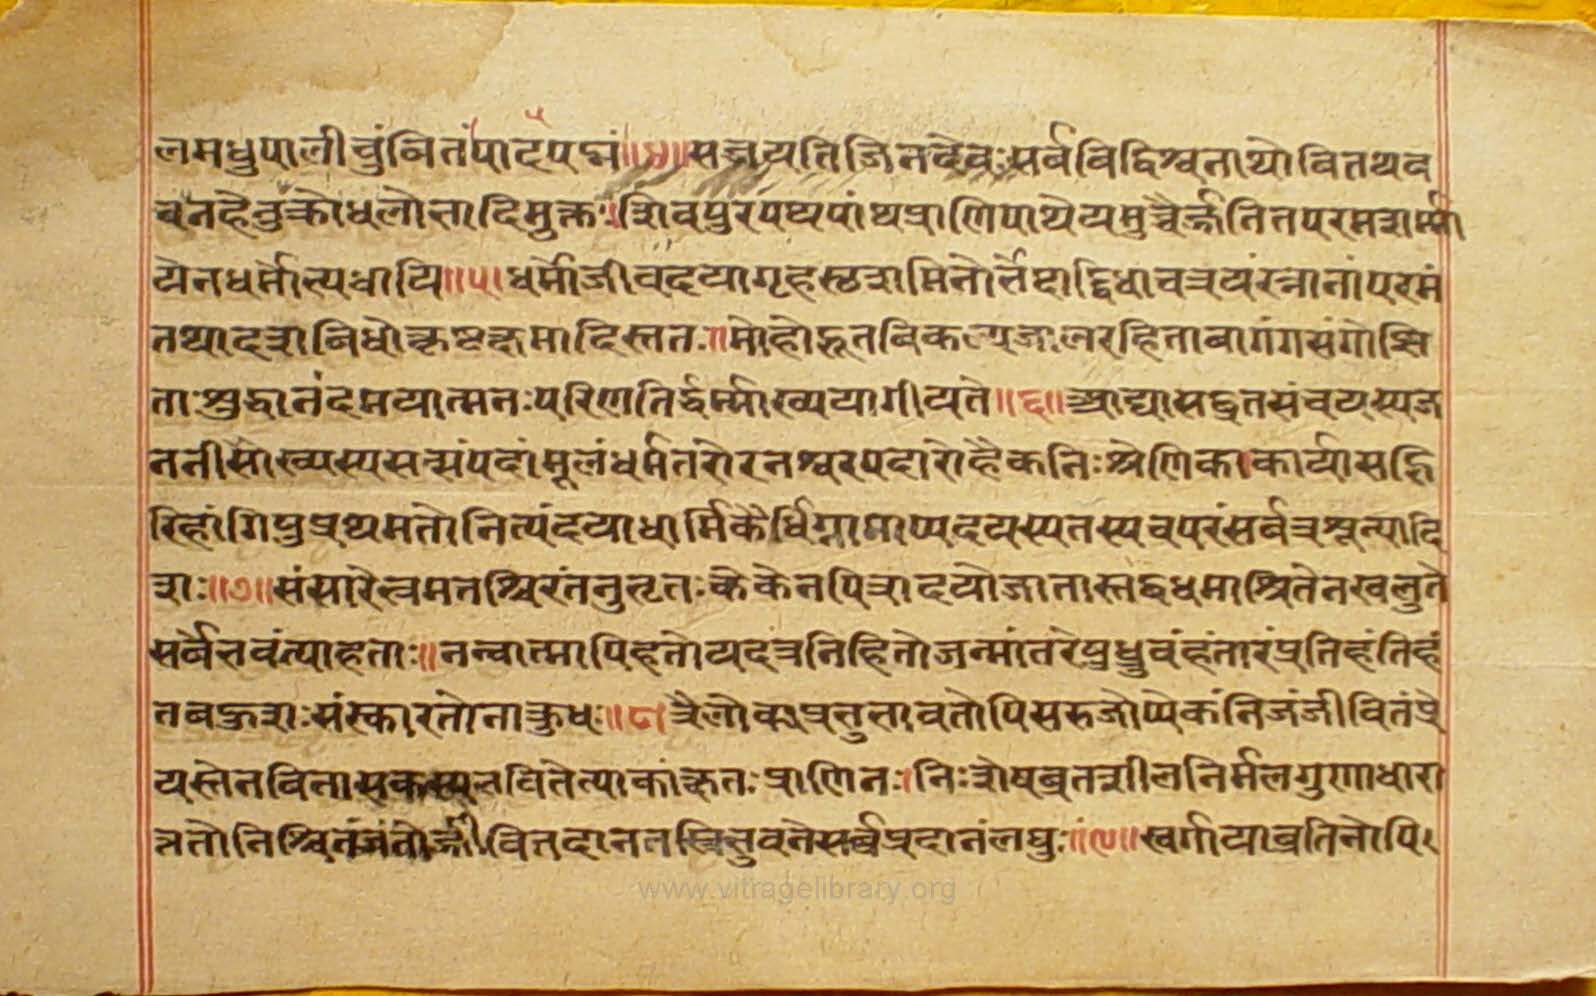 लमधुपालीचुंबितंपादपद्मं॥४॥सज्जयतिजिनदेवःसर्वविद्विश्वनाथोवितथव
चनहेतुक्रोधलोभादिमुक्तः।शिवपुरपथपांथप्राणिपाथेयमुच्चैर्जनितपरमशर्म्मा
येनधर्मोभ्यधायि॥५।धर्मोजीवदयागृहस्थशमिनोर्भेदाद्द्विधाचत्रयंरत्नानांपरमं
तथादशविधोत्कृष्टक्षमादिस्ततः॥मोहोद्भूतविकल्पजालरहितावागंगसंगोझि
ताःशुद्धानंदमयात्मनःपरिणतिर्द्धर्म्माख्ययागीयते॥६॥आद्यासद्व्रतसंचयस्यज
ननीसौख्यस्यसत्संपदांमूलंधर्मतरोरनश्वरपदारोहैकनिःश्रेणिकाकार्यासद्भि
रिहांगिषुप्रथमतोनित्यंदयाधार्मिकैर्धिग्नामाप्यदयस्यतस्यचपरंसर्वत्रशून्यादि
शः॥७॥संसारेभ्रमतश्चिरंतनुभृतःकेकेनपित्रादयोजातास्तद्वधमाश्रितेनखलुते
सर्वेभवंत्याहताः॥नन्वात्मापिहतोयदत्रनिहितोजन्मांतरेषुध्रुवंहंतारंप्रतिहंतिहं
तबहुशःसंस्कारतोनाक्रुधः॥८।त्रैलोक्यप्रभुभावतोपिसरुजोप्येकंनिजंजीवितंप्रे
यस्तेनविनासकस्यभवितेत्याकांक्षतःप्राणिनः।निःशेषव्रतशीलनिर्मलगुणाधारा
त्ततोनिश्चितंजंतोर्जीवितदानतस्त्रिभुवनेसर्वप्रदानंलघुः॥९॥स्वर्गायाव्रतिनोपि।
www.vitragelibrary.org